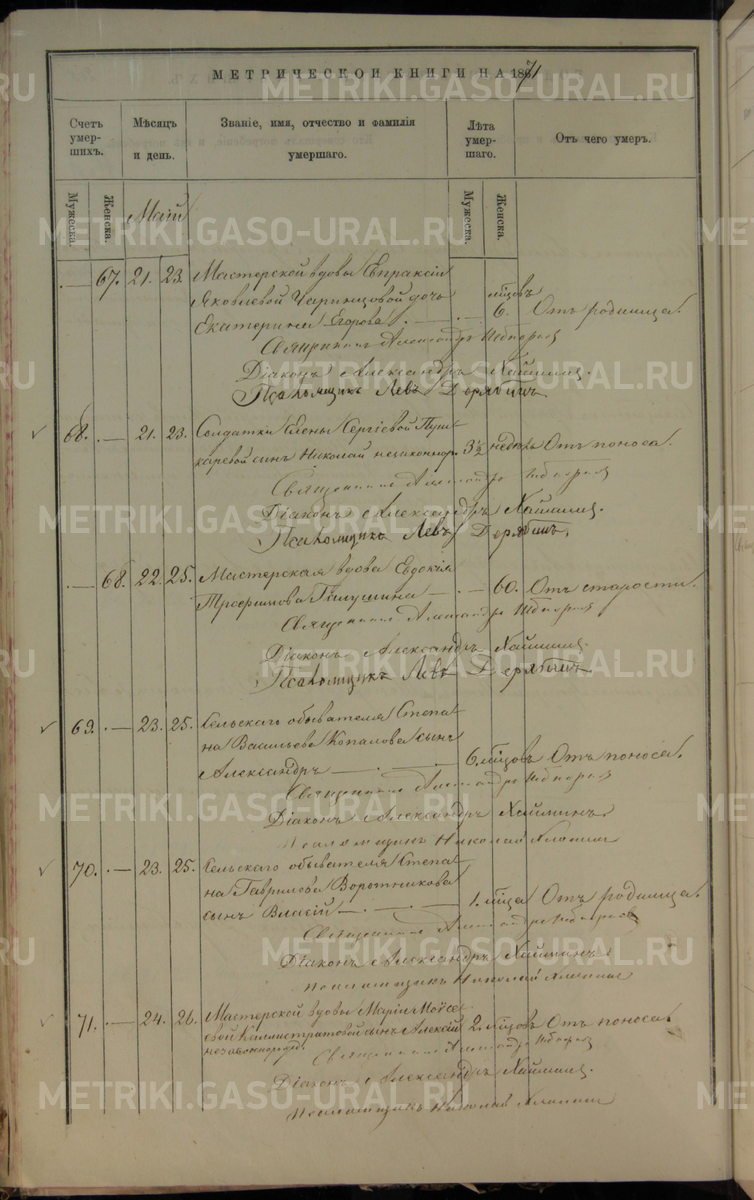 МЕТРИЧЕСКОЙ КНИГИ НА 1871
Счетъ умершихъ.
Мѣсяцъ и день.
Званіе, имя, отчество и фамилія умершаго.
Лѣта умершаго.
Отъ чего умеръ.
Мужеска. Женска. Май Мужеска. Женска.
67. 21. 23. Мастерской вдовы Евпраксіи
Яковлевой дочь мѣсяцовъ
Екатерина Егорова 6. Отъ родимца.
Священникъ Александръ
Діаконъ Александръ
Псаломщикъ Левъ Дерябинъ
68. 21. 23. Солдатки Елены Сергіевой Пуш
каревой сынъ Николай 3½ недѣль Отъ поноса.
Священникъ Александръ
Діаконъ Александръ
Псаломщикъ Левъ Дерябинъ.
68. 22. 25. Мастерская вдова Евдокія
Трофимова 60. Отъ старости.
Священникъ Александръ
Діаконъ Александръ
Псаломщикъ Левъ Дерябинъ
69. 23. 25. Сельскаго обывателя Степа
на Васильева Копалова сынъ
Александръ 6. мѣсяцовъ Отъ поноса.
Священникъ Александръ
Діаконъ Александръ
Псаломщикъ Николай
70. 23. 25. Сельскаго обывателя Степа
на Гаврилова Воротникова
сынъ Власій 1. мѣсяца Отъ родимца.
Священникъ Александръ
Діаконъ Александръ
Псаломщикъ Николай
71. 24. 26. Мастерской вдовы Маріи Моѵсе
евой Каллистратовой сынъ Алексій 2. мѣсяцовъ Отъ поноса.
незаконнорожд.
Священникъ Александръ
Діаконъ Александръ
Псаломщикъ Николай
METRIKI.GASO-URAL.RU